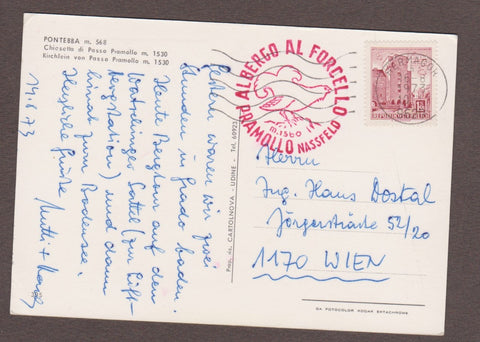 PONTEBBA m. 568
Chiesetta di Passo Pramollo m. 1530
Kirchlein von Passo Pramollo m. 1530
14.8.73
Gestern waren wir zwei
Stunden in Grado baden.
Heute Bergtour auf den
Sattel (zur Lift-
bergstation) und dann
heimat zum Bodensee.
Herzliche Grüße Mutti +
Prop. ris. CARTOLNOVA - UDINE - Tel. 60923
ALBERGO AL FORCELLO
m. 1560
PRAMOLLO NASSFELD
REPUBLIK ÖSTERREICH
Herrn
Ing. Hans Dostal
Jörgerstraße 52/20
1170 WIEN
DA FOTOCOLOR KODAK EKTACHROME